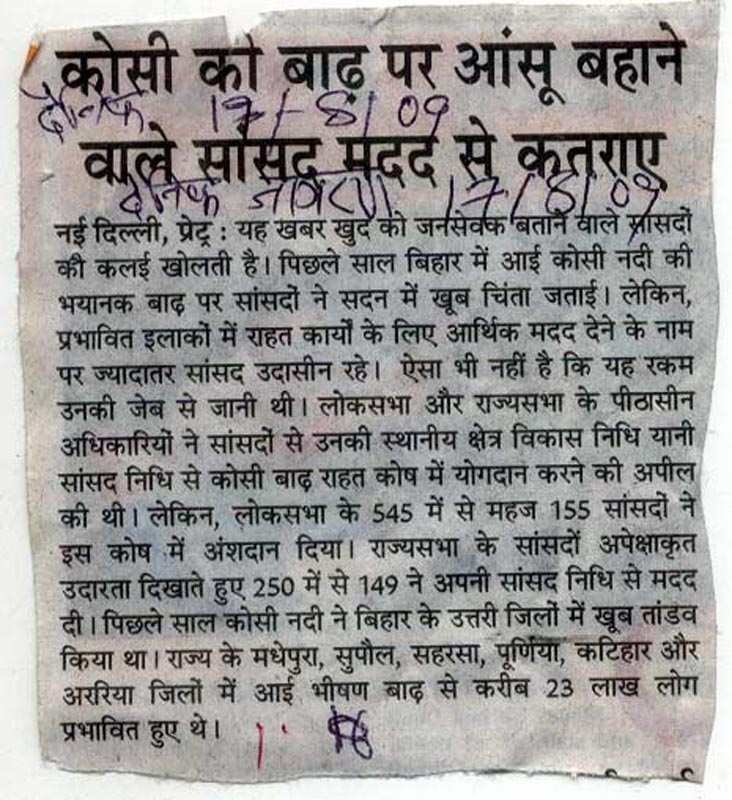 कोसी की बाढ़ पर आंसू बहाने
दैनिक 17/8/09
वाले सांसद मदद से कतराए
दैनिक जागरण 17/8/09
नई दिल्ली, प्रेट्र : यह खबर खुद को जनसेवक बताने वाले सांसदों
की कलई खोलती है। पिछले साल बिहार में आई कोसी नदी की
भयानक बाढ़ पर सांसदों ने सदन में खूब चिंता जताई। लेकिन,
प्रभावित इलाकों में राहत कार्यों के लिए आर्थिक मदद देने के नाम
पर ज्यादातर सांसद उदासीन रहे। ऐसा भी नहीं है कि यह रकम
उनकी जेब से जानी थी। लोकसभा और राज्यसभा के पीठासीन
अधिकारियों ने सांसदों से उनकी स्थानीय क्षेत्र विकास निधि यानी
सांसद निधि से कोसी बाढ़ राहत कोष में योगदान करने की अपील
की थी। लेकिन, लोकसभा के 545 में से महज 155 सांसदों ने
इस कोष में अंशदान दिया। राज्यसभा के सांसदों अपेक्षाकृत
उदारता दिखाते हुए 250 में से 149 ने अपनी सांसद निधि से मदद
दी। पिछले साल कोसी नदी ने बिहार के उत्तरी जिलों में खूब तांडव
किया था। राज्य के मधेपुरा, सुपौल, सहरसा, पूर्णिया, कटिहार और
अररिया जिलों में आई भीषण बाढ़ से करीब 23 लाख लोग
प्रभावित हुए थे।